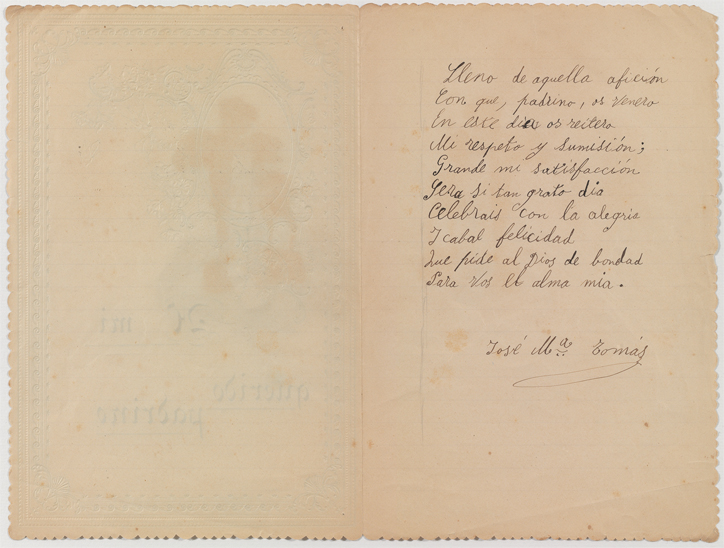 Á mi
querido
padrino
Lleno de aquella afición
Con que, padrino, os venero
En este dia os reitero
Mi respeto y sumisión;
Grande mi satisfacción
Sera si tan grato dia
Celebrais con la alegria
Y cabal felicidad
Que pide al Dios de bondad
Para Vos el alma mia.
José Mª Tomás